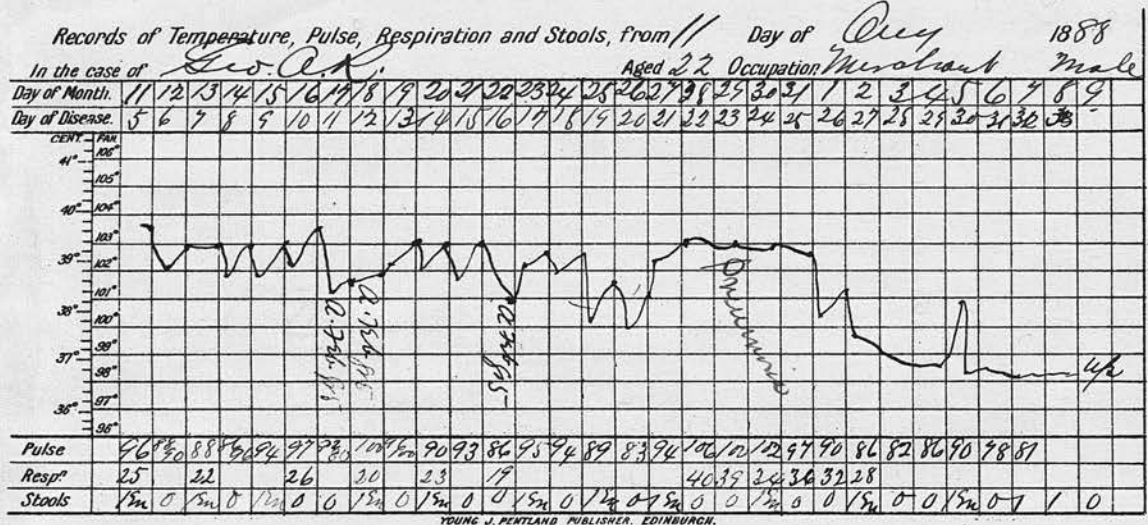 Records of Temperature, Pulse, Respiration and Stools, from 11 Day of Aug 1888
In the case of Geo. A. R. Aged 22 Occupation Merchant Male
Day of Month. 11 12 13 14 15 16 17 18 19 20 21 22 23 24 25 26 27 28 29 30 31 1 2 3 4 5 6 7 8 9
Day of Disease. 5 6 7 8 9 10 11 12 13 14 15 16 17 18 19 20 21 22 23 24 25 26 27 28 29 30 31 32 33
CENT. FAH.
106°
41°
105°
40° 104°
103°
39° 102°
101°
38° 100°
99°
37° 98°
97°
36° 96°
Pneumonia
Pulse 96 88 94 97 100 90 93 86 95 94 89 83 94 106 102 102 97 90 86 82 86 90 78 81
Respn. 25 22 26 20 23 19 40 39 34 36 32 28
Stools 0 0 0 0 0 0 0 0 0 0 0 0 0 0 0 0 1 1 0
YOUNG J. PENTLAND PUBLISHER, EDINBURGH.